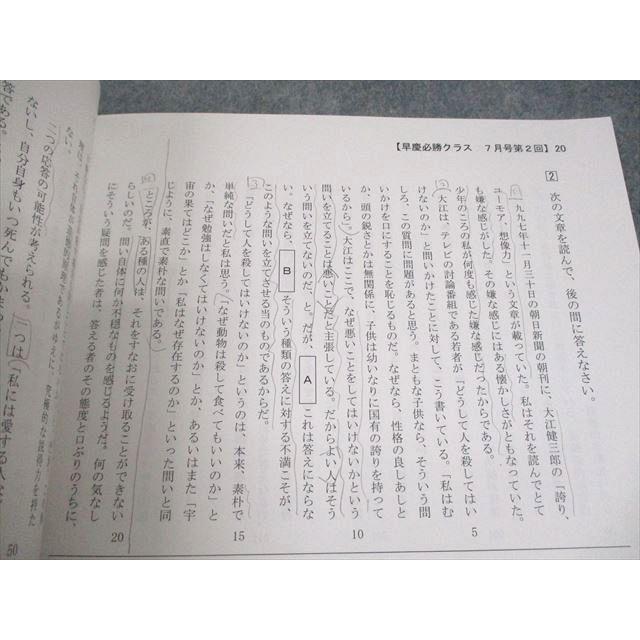 【早慶必勝クラス 7月号第2回】 20
2 次の文章を読んで、後の問に答えなさい。
一九九七年十一月三十日の朝日新聞の朝刊に、大江健三郎の「誇り、
ユーモア、想像力」という文章が載っていた。私はそれを読んでとて
も嫌な感じがした。その嫌な感じにはある懐かしさがともなっていた。
少年のころの私が何度も感じた嫌な感じだったからである。
大江は、「テレビの討論番組である若者が「どうして人を殺してはい
けないのか」と問いかけたことに対して、こう書いている。「私はむ
しろ、この質問に問題があると思う。まともな子供なら、そういう問
いかけを口にすることを恥じるものだ。なぜなら、性格の良しあしと
か、頭の鋭さとかは無関係に、子供は幼いなりに固有の誇りを持って
いるから」。大江はここで、なぜ悪いことをしてはいけないかという
問いを立てることは悪いことだと主張している。だからよい人はそう
いう問いを立てないのだ、と。だが、 A これは答えにならな
い。なぜなら、 B そういう種類の答えに対する不満こそが、
このような問いを立てさせる当のものであるからだ。
「どうして人を殺してはいけないのか」というのは、本来、素朴で
単純な問いだと私は思う。「なぜ動物は殺して食べてもいいのか」と
か、「なぜ勉強はしなくてはいけないのか」とか、あるいはまた「宇
宙の果てはどこか」とか「私はなぜ存在するのか」といった問いと同
じように、素直で素朴な問いである。
ところが、ある種の人は、それをすなおに受け取ることができない
らしいのだ。問い自体に何か不穏なものを感じるようだ。何の気なし
にそういう疑問を感じた者は、答える者のその態度と口ぶりのうちに、
5
10
15
20
ない。
二つの応答の可能性が考えられる。一つは「私には愛する人な
ないし、自分自身もいつ死んでもか
答である。
50